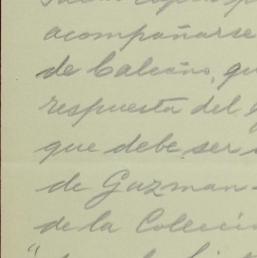 acompañarse
de Calcaño, qu
respuesta del
que debe ser
de Guzman
de la Colecci
"